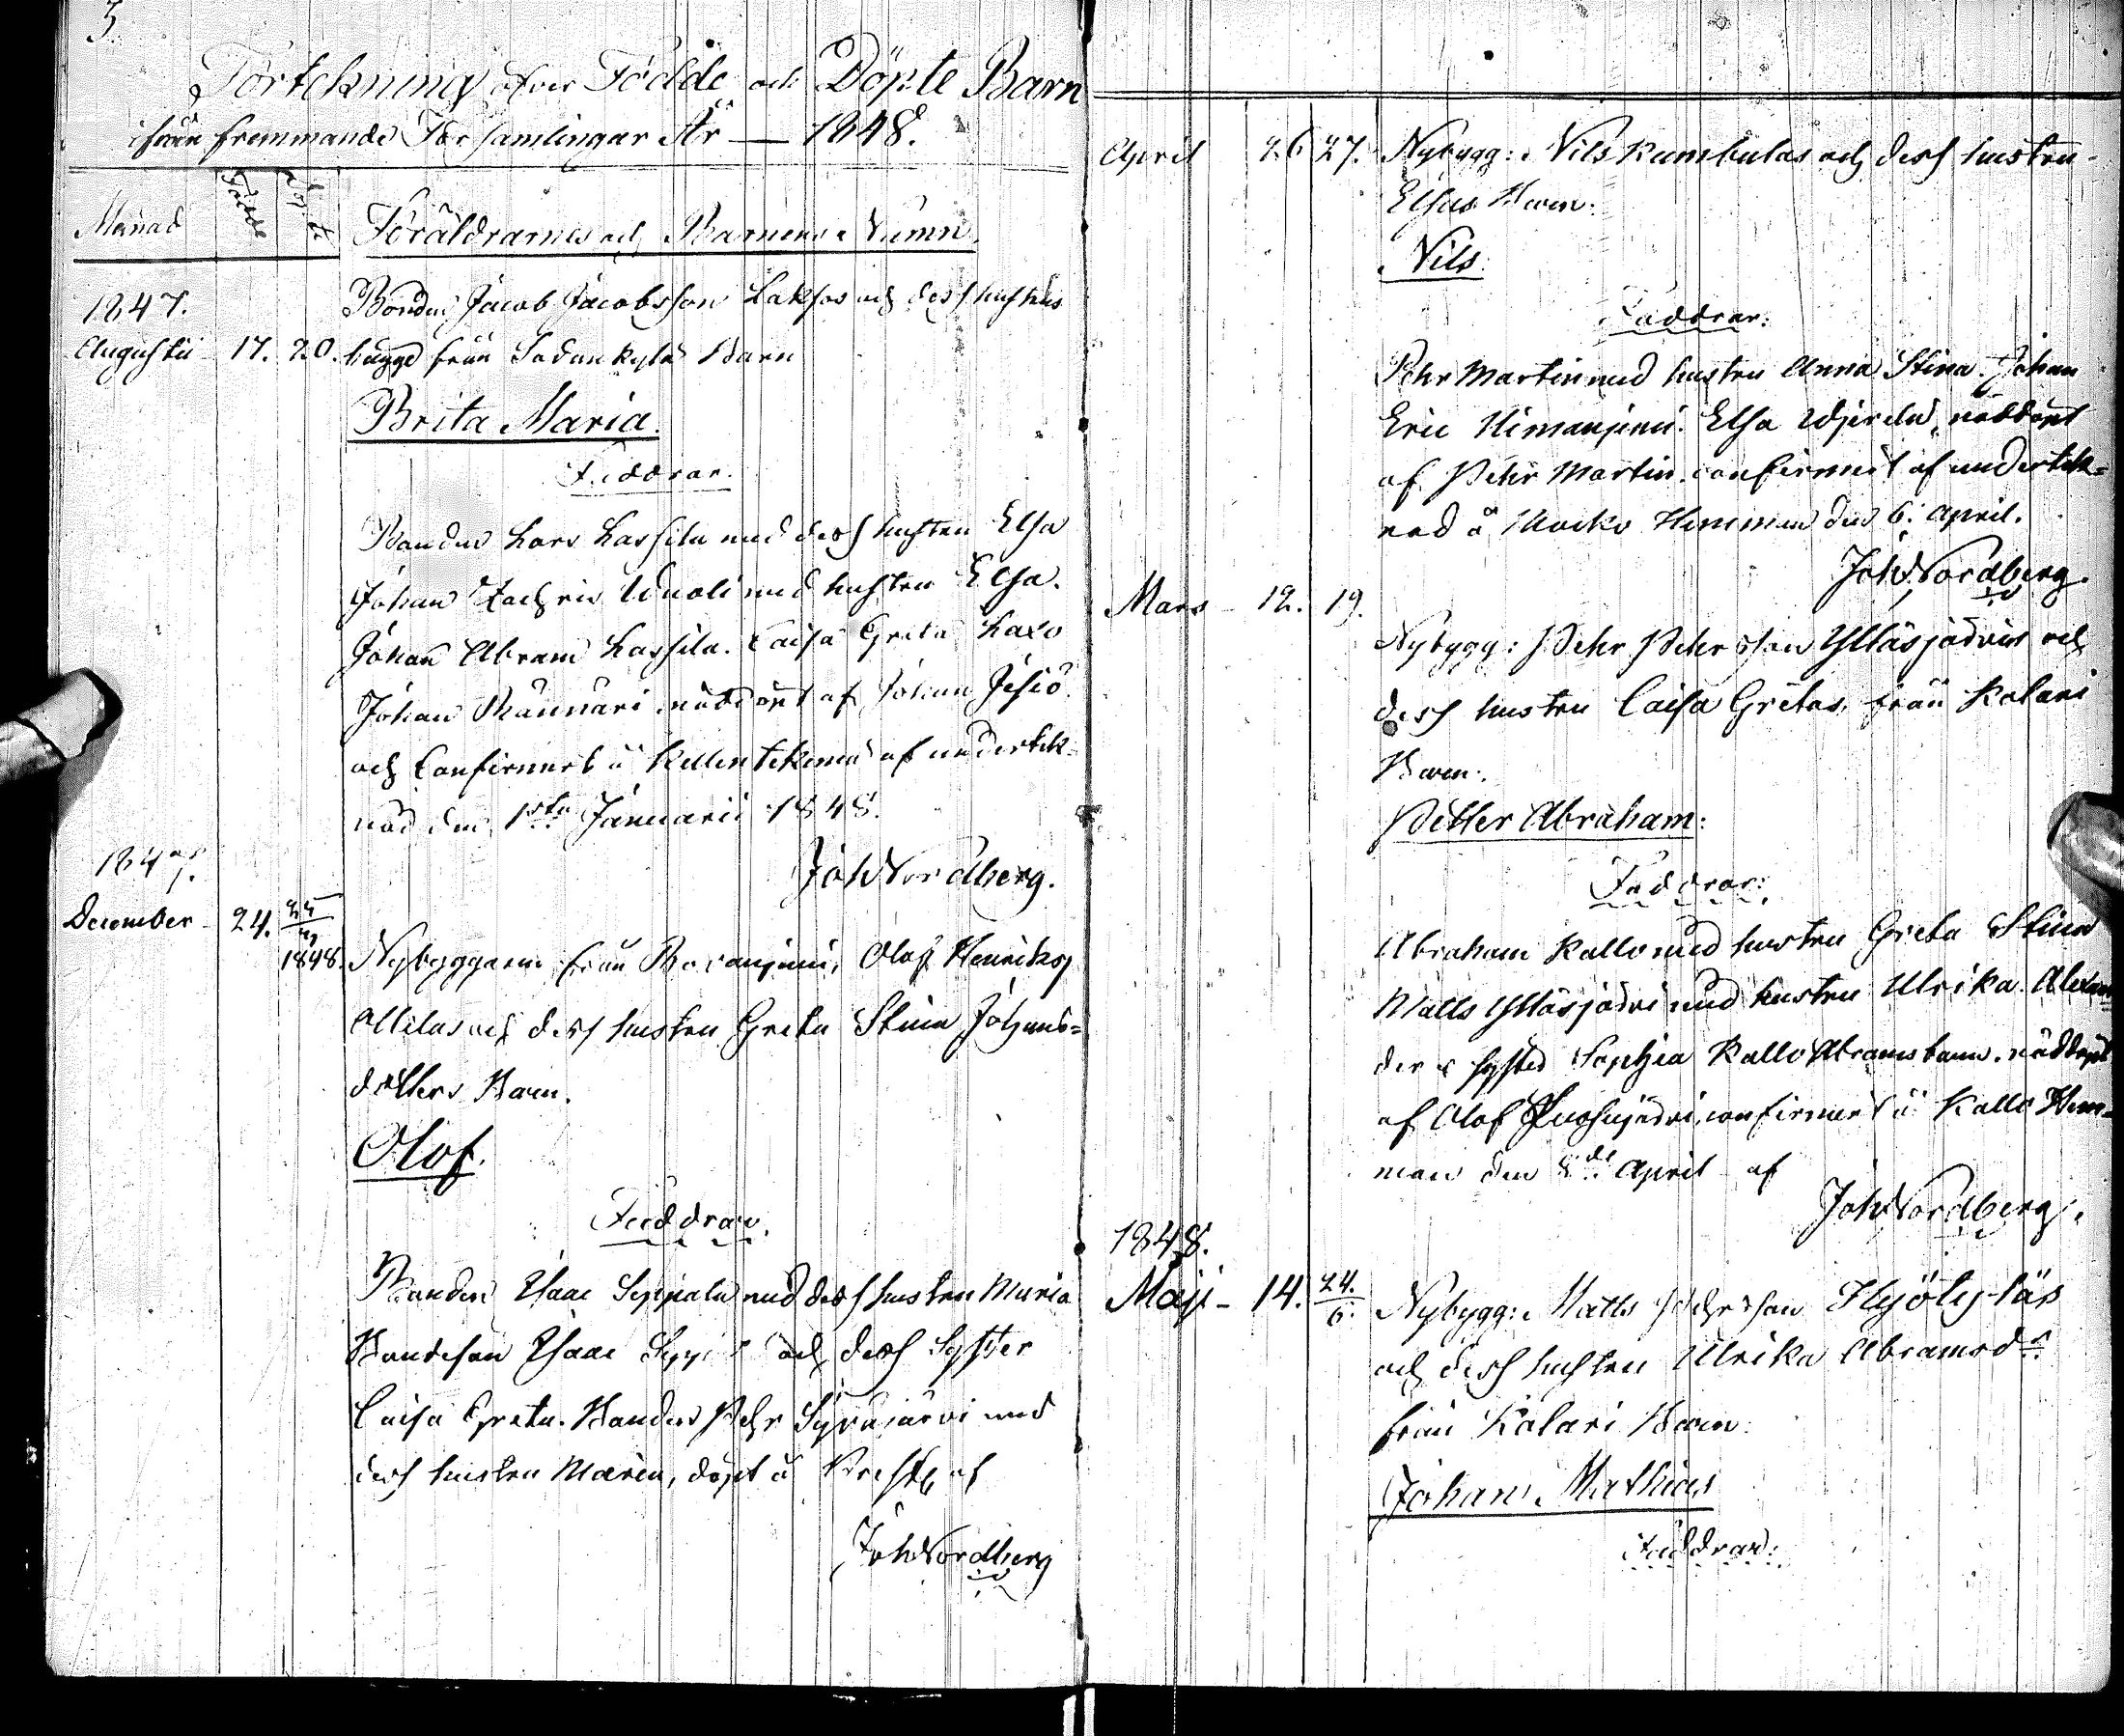 Förtekning öfver Födde och Döpte Barn
ifrån fremmande Församlingar År — 1848.
Månad Födde Döpte Föräldrarnes och Barnens Namn.
1847. Bonden Jacob Jacobsson och dess hustrus
Augusti 17. 20. från Sodankylä Barn
Brita Maria.
Faddrar.
Bonden Lars Lassila med dess hustru Elsa
Johan med hustru Elsa.
Johan Abram Lassila. Caisa Greta
Johan nöddöpt af Johan Jesiö
och Confirmert å af undertek-
nad den 1sta Januarii 1848.
Joh Nordberg.
1847.
December 24. 1848. Nybyggaren från Olof Henriks
och dess hustru Greta Stina Johans=
dotters Barn.
Olof.
Faddrar.
Bonden Isaac Seppala med dess hustru Maria
Bondeson Isaac och dess Syster
Caisa Greta. Bonden Pehr med
dess hustru Maria, döpt å af
Joh Nordberg
April 26 27. Nybygg: Nils Kumbulas och dess hustru
Elsas Barn:
Nils.
Faddrar:
Pehr Martin med hustru Anna Stina. Johan
Eric Elsa nöddöpt
af Pehr Martin. confirmert af undertek=
nad å Hemman den 6. April.
Joh Nordberg.
Mars 12. 19.
Nybygg: Pehr Pehrsson Ylläsjärvis och
dess hustru Caisa Gretas, från Kolari
Barn:
Petter Abraham:
Faddrar:
Abraham Kallo med hustru Greta Stina
Matts Ylläsjärvi med hustru Ulrika. Alexan
der & syster Sophia Kallo Abrams barn. nöddöpt
af Olof confirmert å Kallo Hem-
man den 8de April af
Joh Nordberg.
1848.
Maji 14. 24./6. Nybygg: Matts Pehrsson
och dess hustru Ulrika Abramsdr
från Kolari Barn:
Johan Mathias
Faddrar: